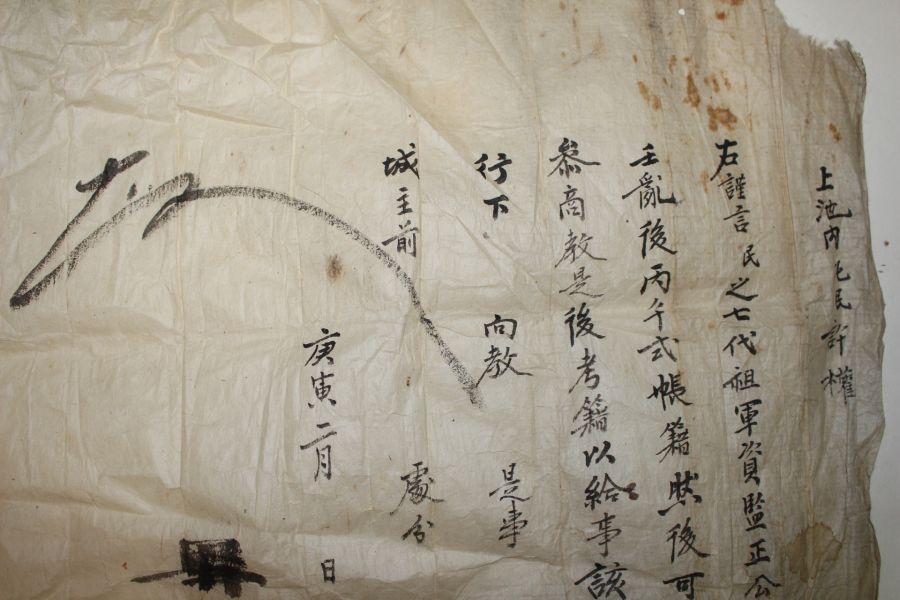 上池內化民許權
右謹言民之七代祖軍資監正公
壬亂後丙午式帳籍然後可
參商教是後考籍以給事該
行下 向教 是事
城主前 處分
庚寅二月 日